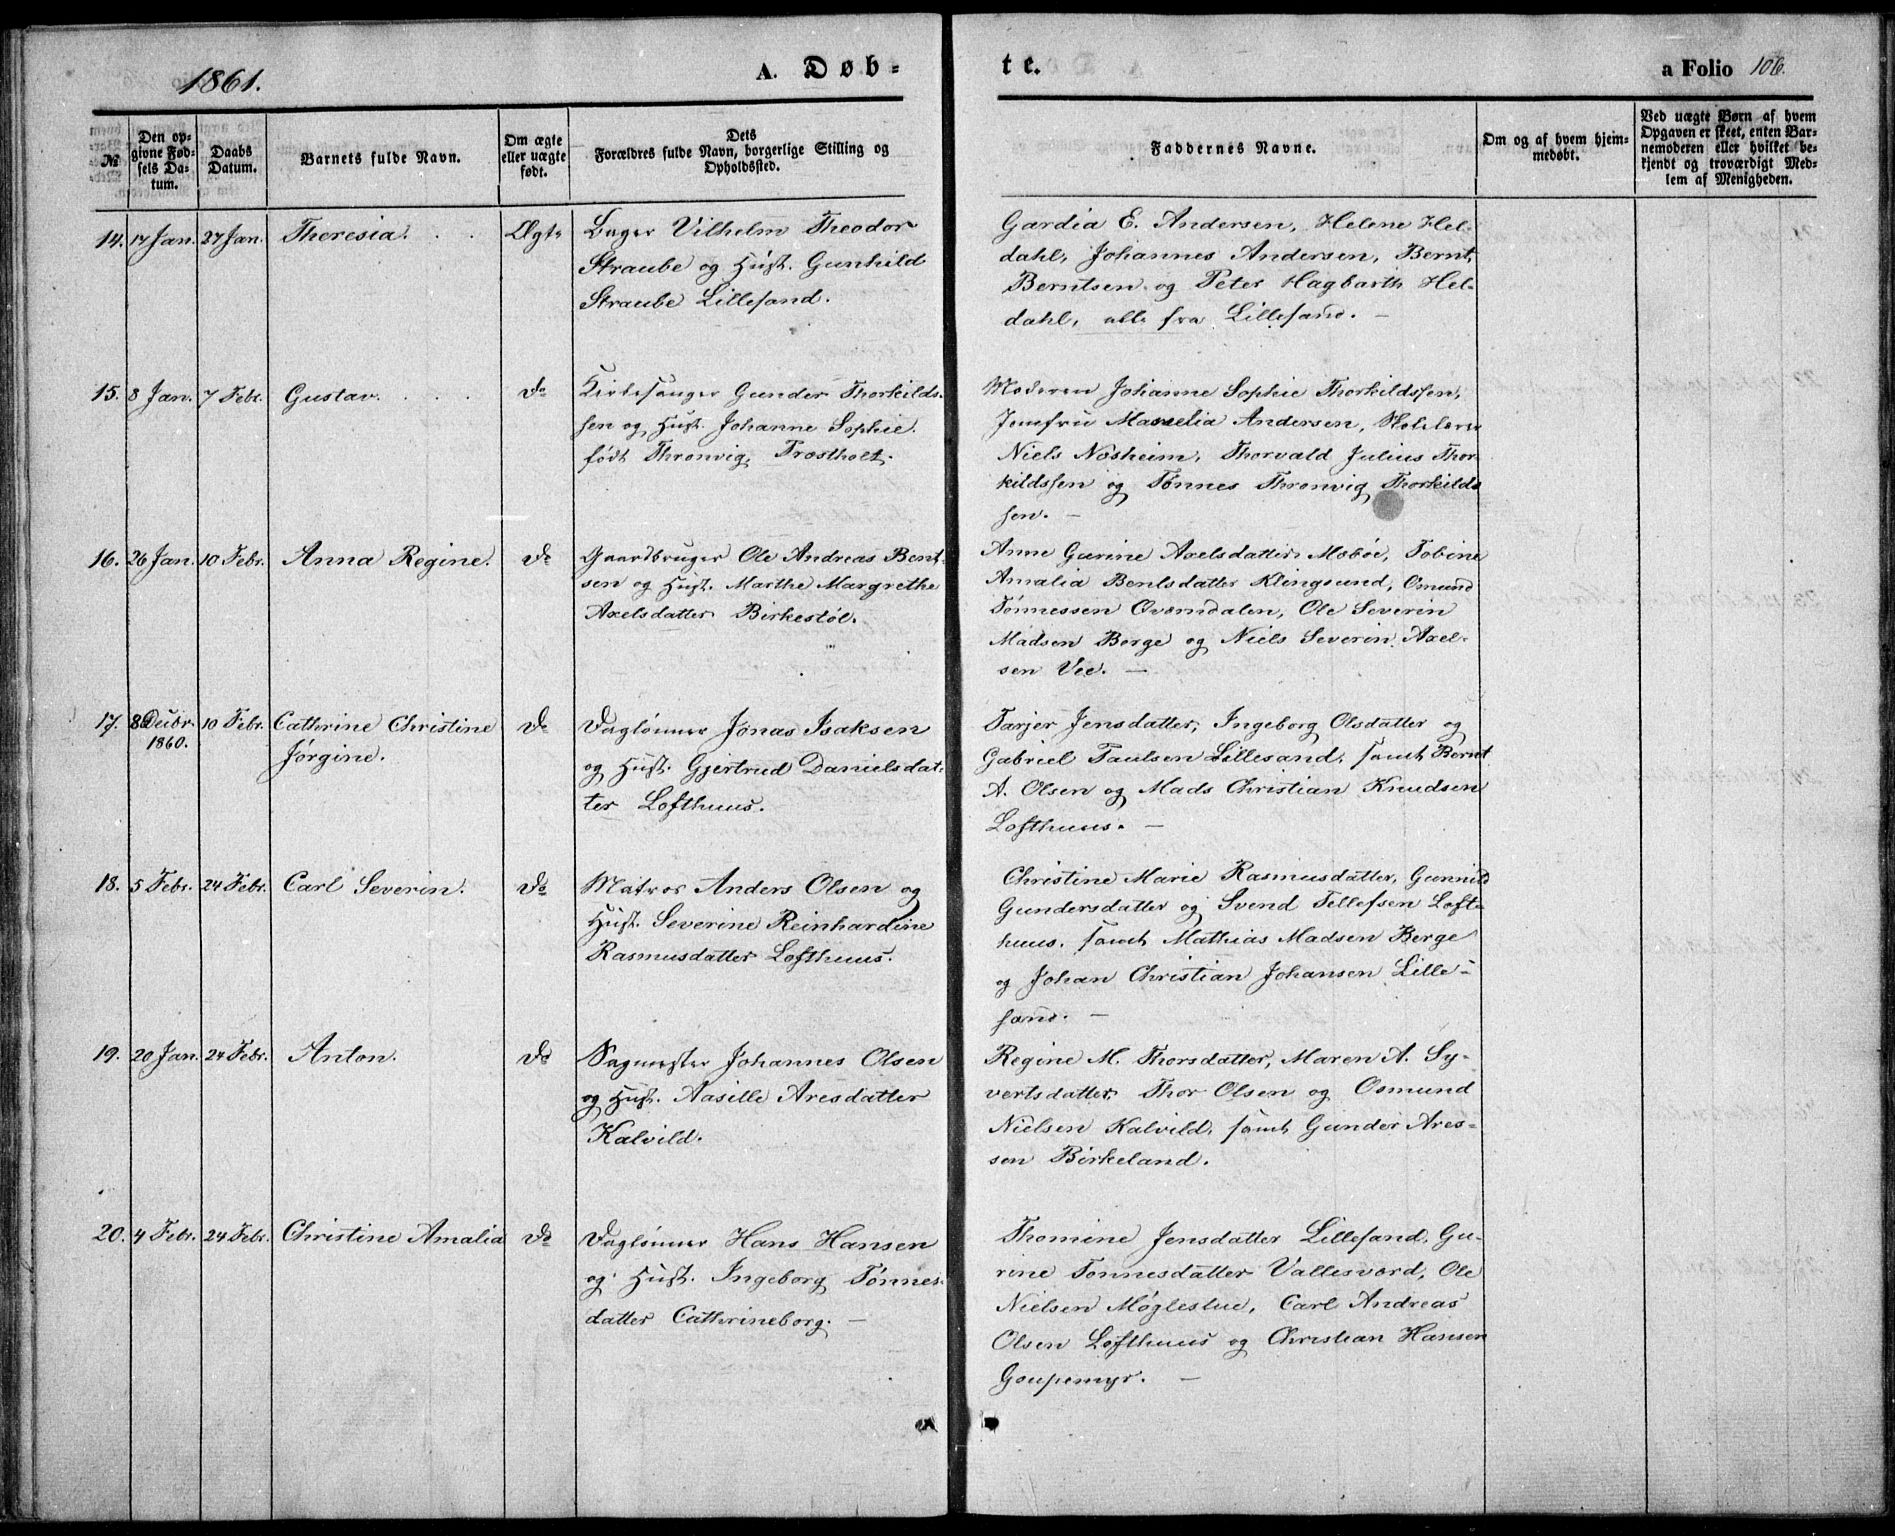 1861.
A. Døb-
te.
a Folio 106.
№
Den op-
givne Fød-
sels Da-
tum.
Daabs
Datum.
Barnets fulde Navn.
Om ægte
eller uægte
født.
Dets
Forældres fulde Navn, borgerlige Stilling og
Opholdssted.
Faddernes Navne.
Om og af hvem hjem-
medøbt.
Ved uægte Børn af hvem
Opgaven er skeet, enten Bar-
nemoderen eller hvilket be-
kjendt og troværdigt Med-
lem af Menigheden.
14. 17 Jan. 27 Jan. Theresia. Ægte
Bager Vilhelm Theodor
Straube og Hust. Gunhild
Straube Lillesand.
Gardia E. Andersen, Helene Hel-
dahl, Johannes Andersen, Bernt
Berntsen og Peter Hagbarth Hel-
dahl, alle fra Lillesand. —
15. 8 Jan. 7 Febr. Gustav. Do
Kirkesanger Gunder Thorkilds-
sen og Hust. Johanne Sophie
født Thronvig, Trøstholt.
Moderen Johanne Sophie Thorkildssen,
Jomfru Andersen, Skolelærer
Niels Næsheim, Thorvald Julius Thor-
kildssen og Tønnes Thronvig Thorkilds
sen. —
16. 26 Jan. 10 Febr. Anna Regine. Do
Gaardbruger Ole Andreas Bent-
sen og Hust. Marthe Margrethe
Axelsdatter Birkestøl.
Anne Gurine Axelsdatter Mæbøe, Tobine
Amalia Bentsdatter Klingsund, Omund
Tønnessen Ovœndalen, Ole Severin
Madsen Berge og Niels Severin Axel-
sen Vee. —
17. 8 Decbr. 1860. 10 Febr. Cathrine Christine
Jørgine. Do
Daglønner Jonas Isaksen
og Hust. Gjertrud Danielsdat-
ter Lofthuus.
Tarjer Jensdatter, Ingeborg Olsdatter og
Gabriel Paulsen Lillesand, samt Bernt
A. Olsen og Mads Christian Knudsen
Lofthuus. —
18. 5 Febr. 24 Febr. Carl Severin. Do
Matros Anders Olsen og
Hust. Severine Reinhardine
Rasmusdatter Lofthuus.
Christine Marie Rasmusdatter, Gunnild
Gundersdatter og Svend Tellefsen Loft-
huus, samt Mathias Madsen Berge
og Johan Christian Johansen Lille-
sand. —
19. 20 Jan. 24 Febr. Anton. Do
Sagmester Johannes Olsen
og Hust. Aasille Aresdatter
Kalvild.
Regine M. Thorsdatter, Maren A. Sy-
vertsdatter, Thor Olsen og Osmund
Nielsen Kalvild, samt Gunder Ares-
sen Birkeland.
20. 4 Febr. 24 Febr. Christine Amalia Do
Daglønner Hans Hansen
og Hust. Ingeborg Tønnes-
datter Cathrineborg. —
Thomine Jensdatter Lillesand, Gu-
rine Tønnesdatter Vallesværd, Ole
Nielsen Møglestue, Carl Andreas
Olsen Lofthuus og Christian Hansen
Goupemyr. —